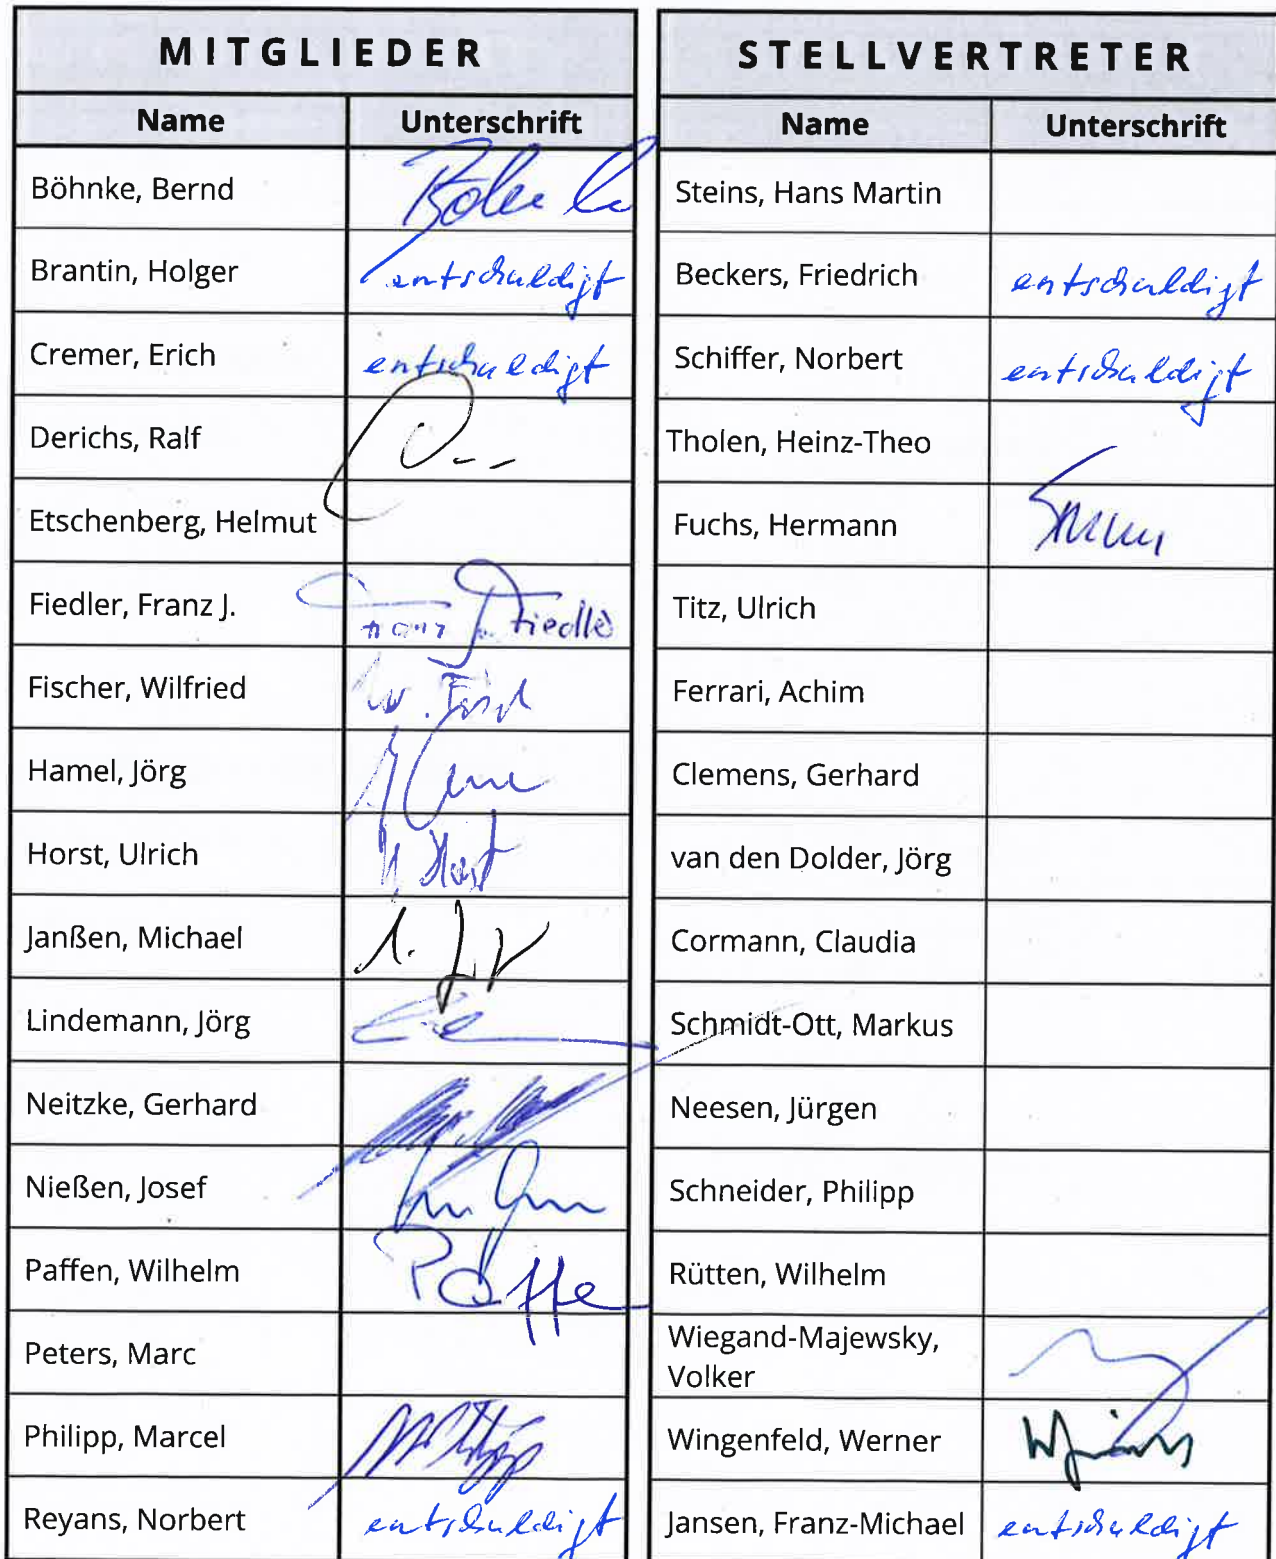 MITGLIEDER
Name Unterschrift
Böhnke, Bernd
Brantin, Holger entschuldigt
Cremer, Erich entschuldigt
Derichs, Ralf
Etschenberg, Helmut
Fiedler, Franz J. Franz J. Fiedler
Fischer, Wilfried W. Fisch
Hamel, Jörg
Horst, Ulrich U. Horst
Janßen, Michael
Lindemann, Jörg
Neitzke, Gerhard
Nießen, Josef
Paffen, Wilhelm Paffe
Peters, Marc
Philipp, Marcel
Reyans, Norbert entschuldigt
STELLVERTRETER
Name Unterschrift
Steins, Hans Martin
Beckers, Friedrich entschuldigt
Schiffer, Norbert entschuldigt
Tholen, Heinz-Theo
Fuchs, Hermann
Titz, Ulrich
Ferrari, Achim
Clemens, Gerhard
van den Dolder, Jörg
Cormann, Claudia
Schmidt-Ott, Markus
Neesen, Jürgen
Schneider, Philipp
Rütten, Wilhelm
Wiegand-Majewsky,
Volker
Wingenfeld, Werner
Jansen, Franz-Michael entschuldigt